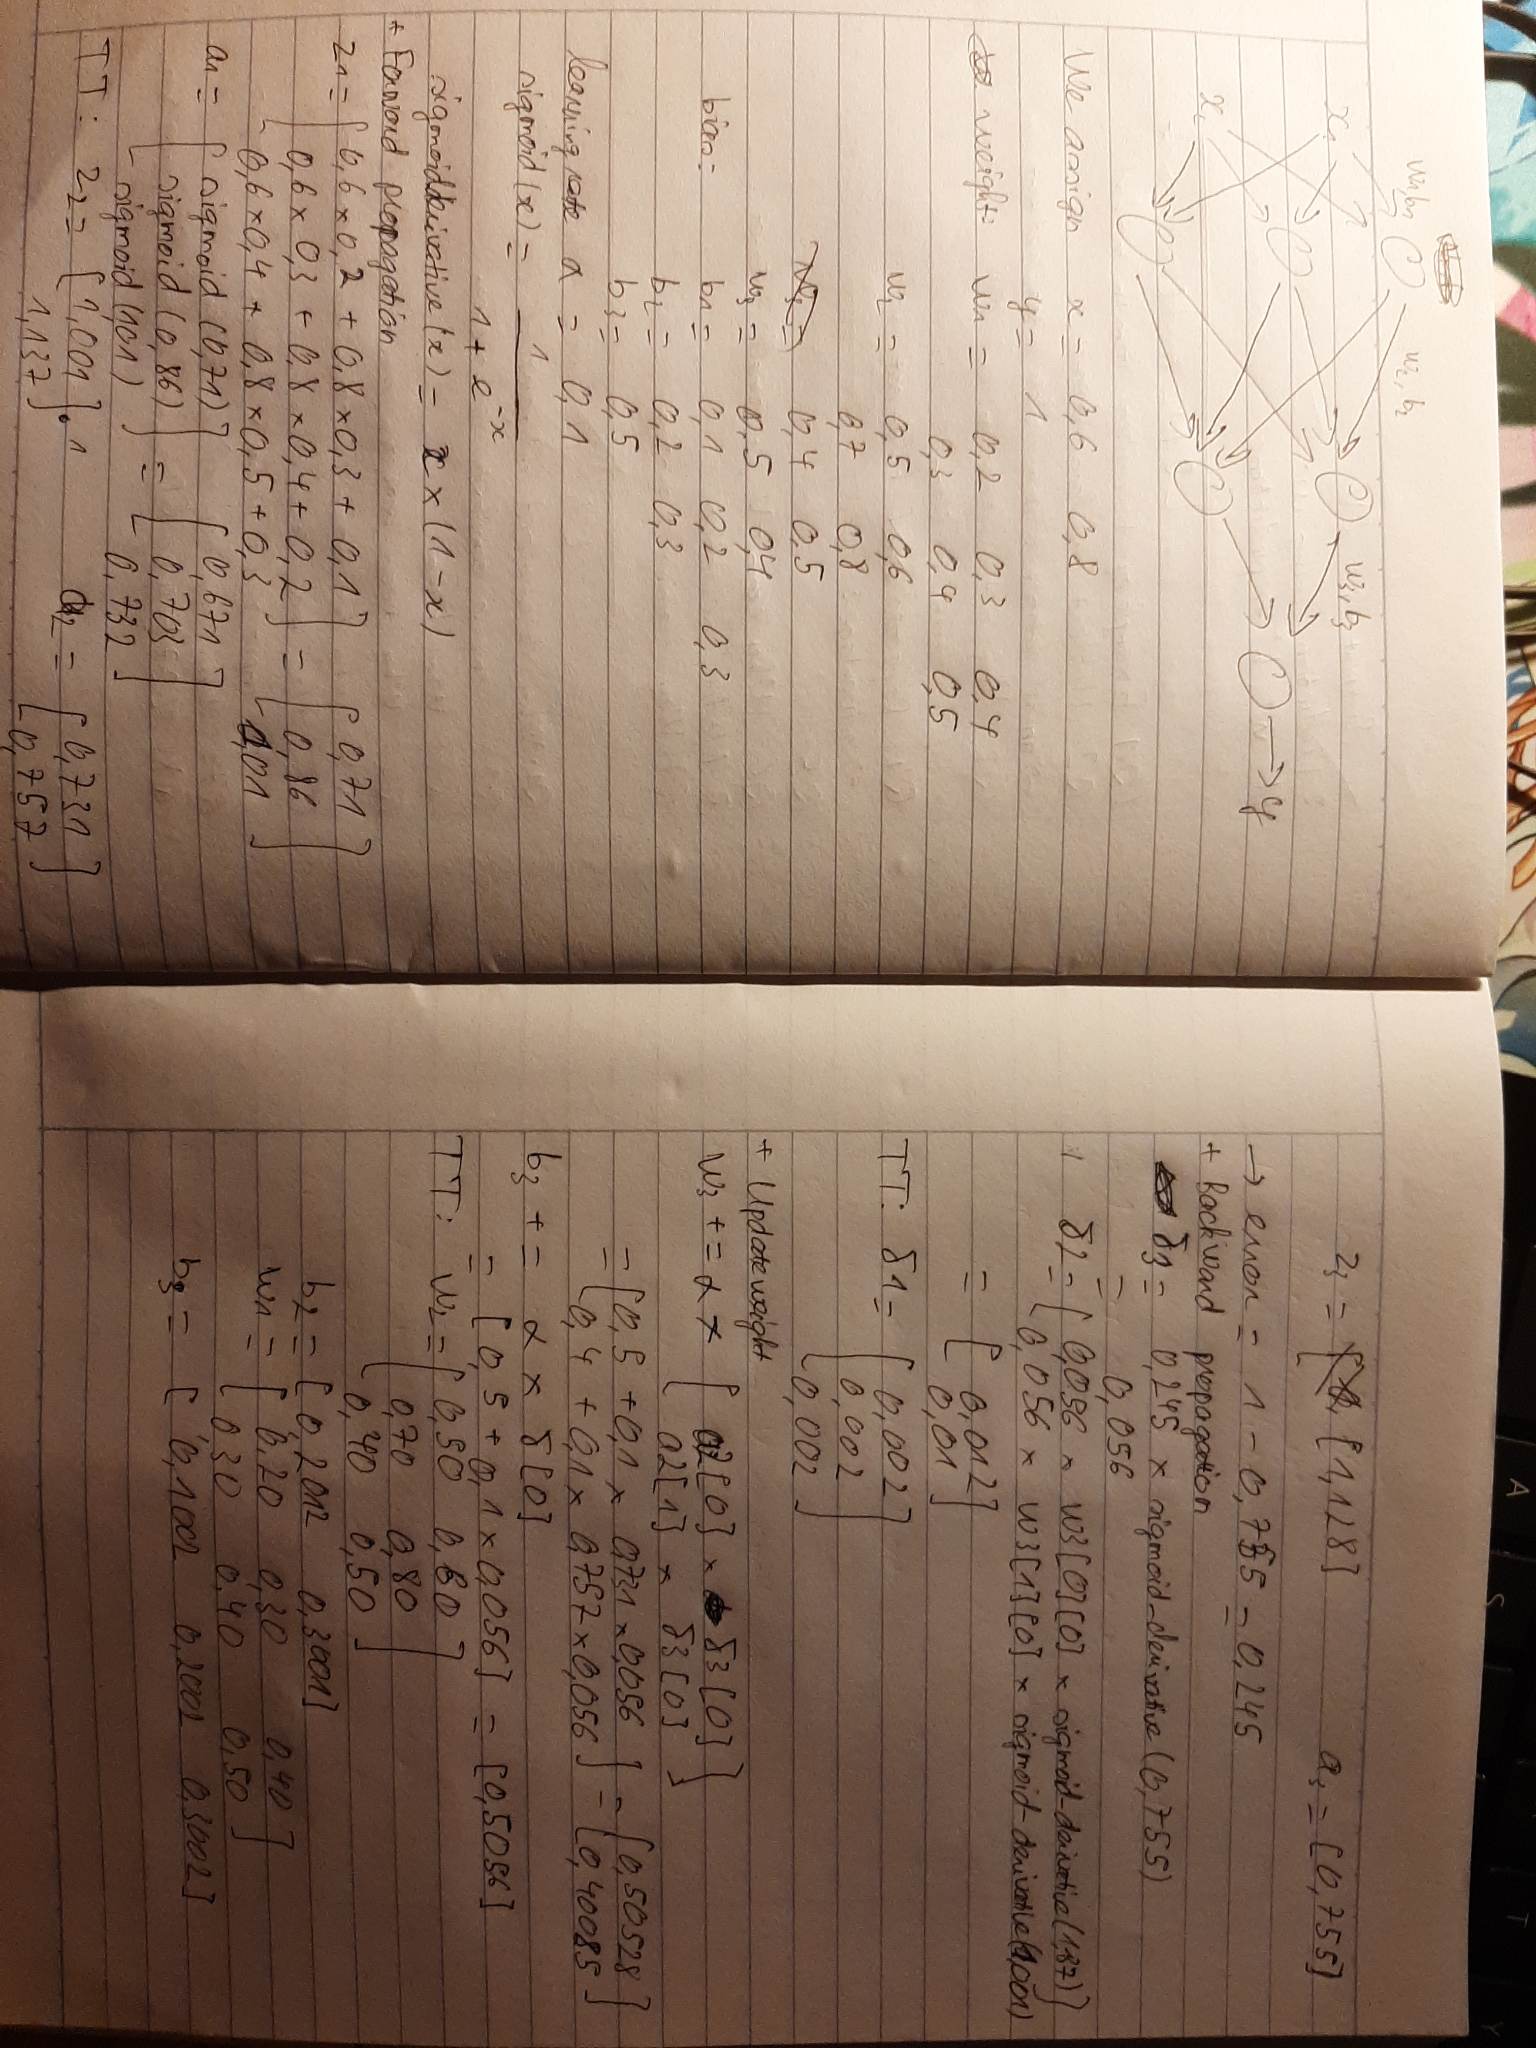 w1,b1
w2, b2
w3, b3
x1
x2
y
We assign x = 0,6 0,8
y = 1
weight: w1 = 0,2 0,3 0,4
0,3 0,4 0,5
w2 = 0,5 0,6
0,7 0,8
0,4 0,5
w3 = 0,5 0,4
bias: b1 = 0,1 0,2 0,3
b2 = 0,2 0,3
b3 = 0,5
learning rate α = 0,1
sigmoid (x) = 1
1 + e^-x
sigmoidderivative (x) = x × (1 - x)
+ Forward propagation
z1 = [ 0,6 × 0,2 + 0,8 × 0,3 + 0,1 ] [ 0,71 ]
0,6 × 0,3 + 0,8 × 0,4 + 0,2 = 0,86
0,6 × 0,4 + 0,8 × 0,5 + 0,3 1,01
a1 = [ sigmoid (0,71) ] [ 0,671 ]
sigmoid (0,86) = 0,703
sigmoid (1,01) 0,732
TT: z2 = [ 1,001 ] . 1 a2 = [ 0,731 ]
1,137 0,757
z3 = [1,128] a3 = [0,755]
→ error = 1 - 0,755 = 0,245
+ Backward propagation
δ3 = 0,245 × sigmoid-derivative (0,755)
= 0,056
δ2 = [ 0,056 × w3[0][0] × sigmoid-derivative (1,87) ]
0,056 × w3[1][0] × sigmoid-derivative (1,001)
= [ 0,012 ]
0,01
TT: δ1 = [ 0,002 ]
0,002
0,002
+ Update weight
w3 += α × [ a2[0] × δ3[0] ]
a2[1] × δ3[0]
= [ 0,5 + 0,1 × 0,731 × 0,056 ] = [ 0,50528 ]
0,4 + 0,1 × 0,757 × 0,056 0,40085
b3 += α × δ[0]
= [ 0,5 + 0,1 × 0,056 ] = [0,5056]
TT: w2 = [ 0,50 0,60 ]
0,70 0,80
0,40 0,50
b2 = [ 0,2012 0,3001]
w1 = [ 0,20 0,30 0,40 ]
0,30 0,40 0,50
b3 = [ 0,1002 0,2002 0,3002]
A
S
T
Y